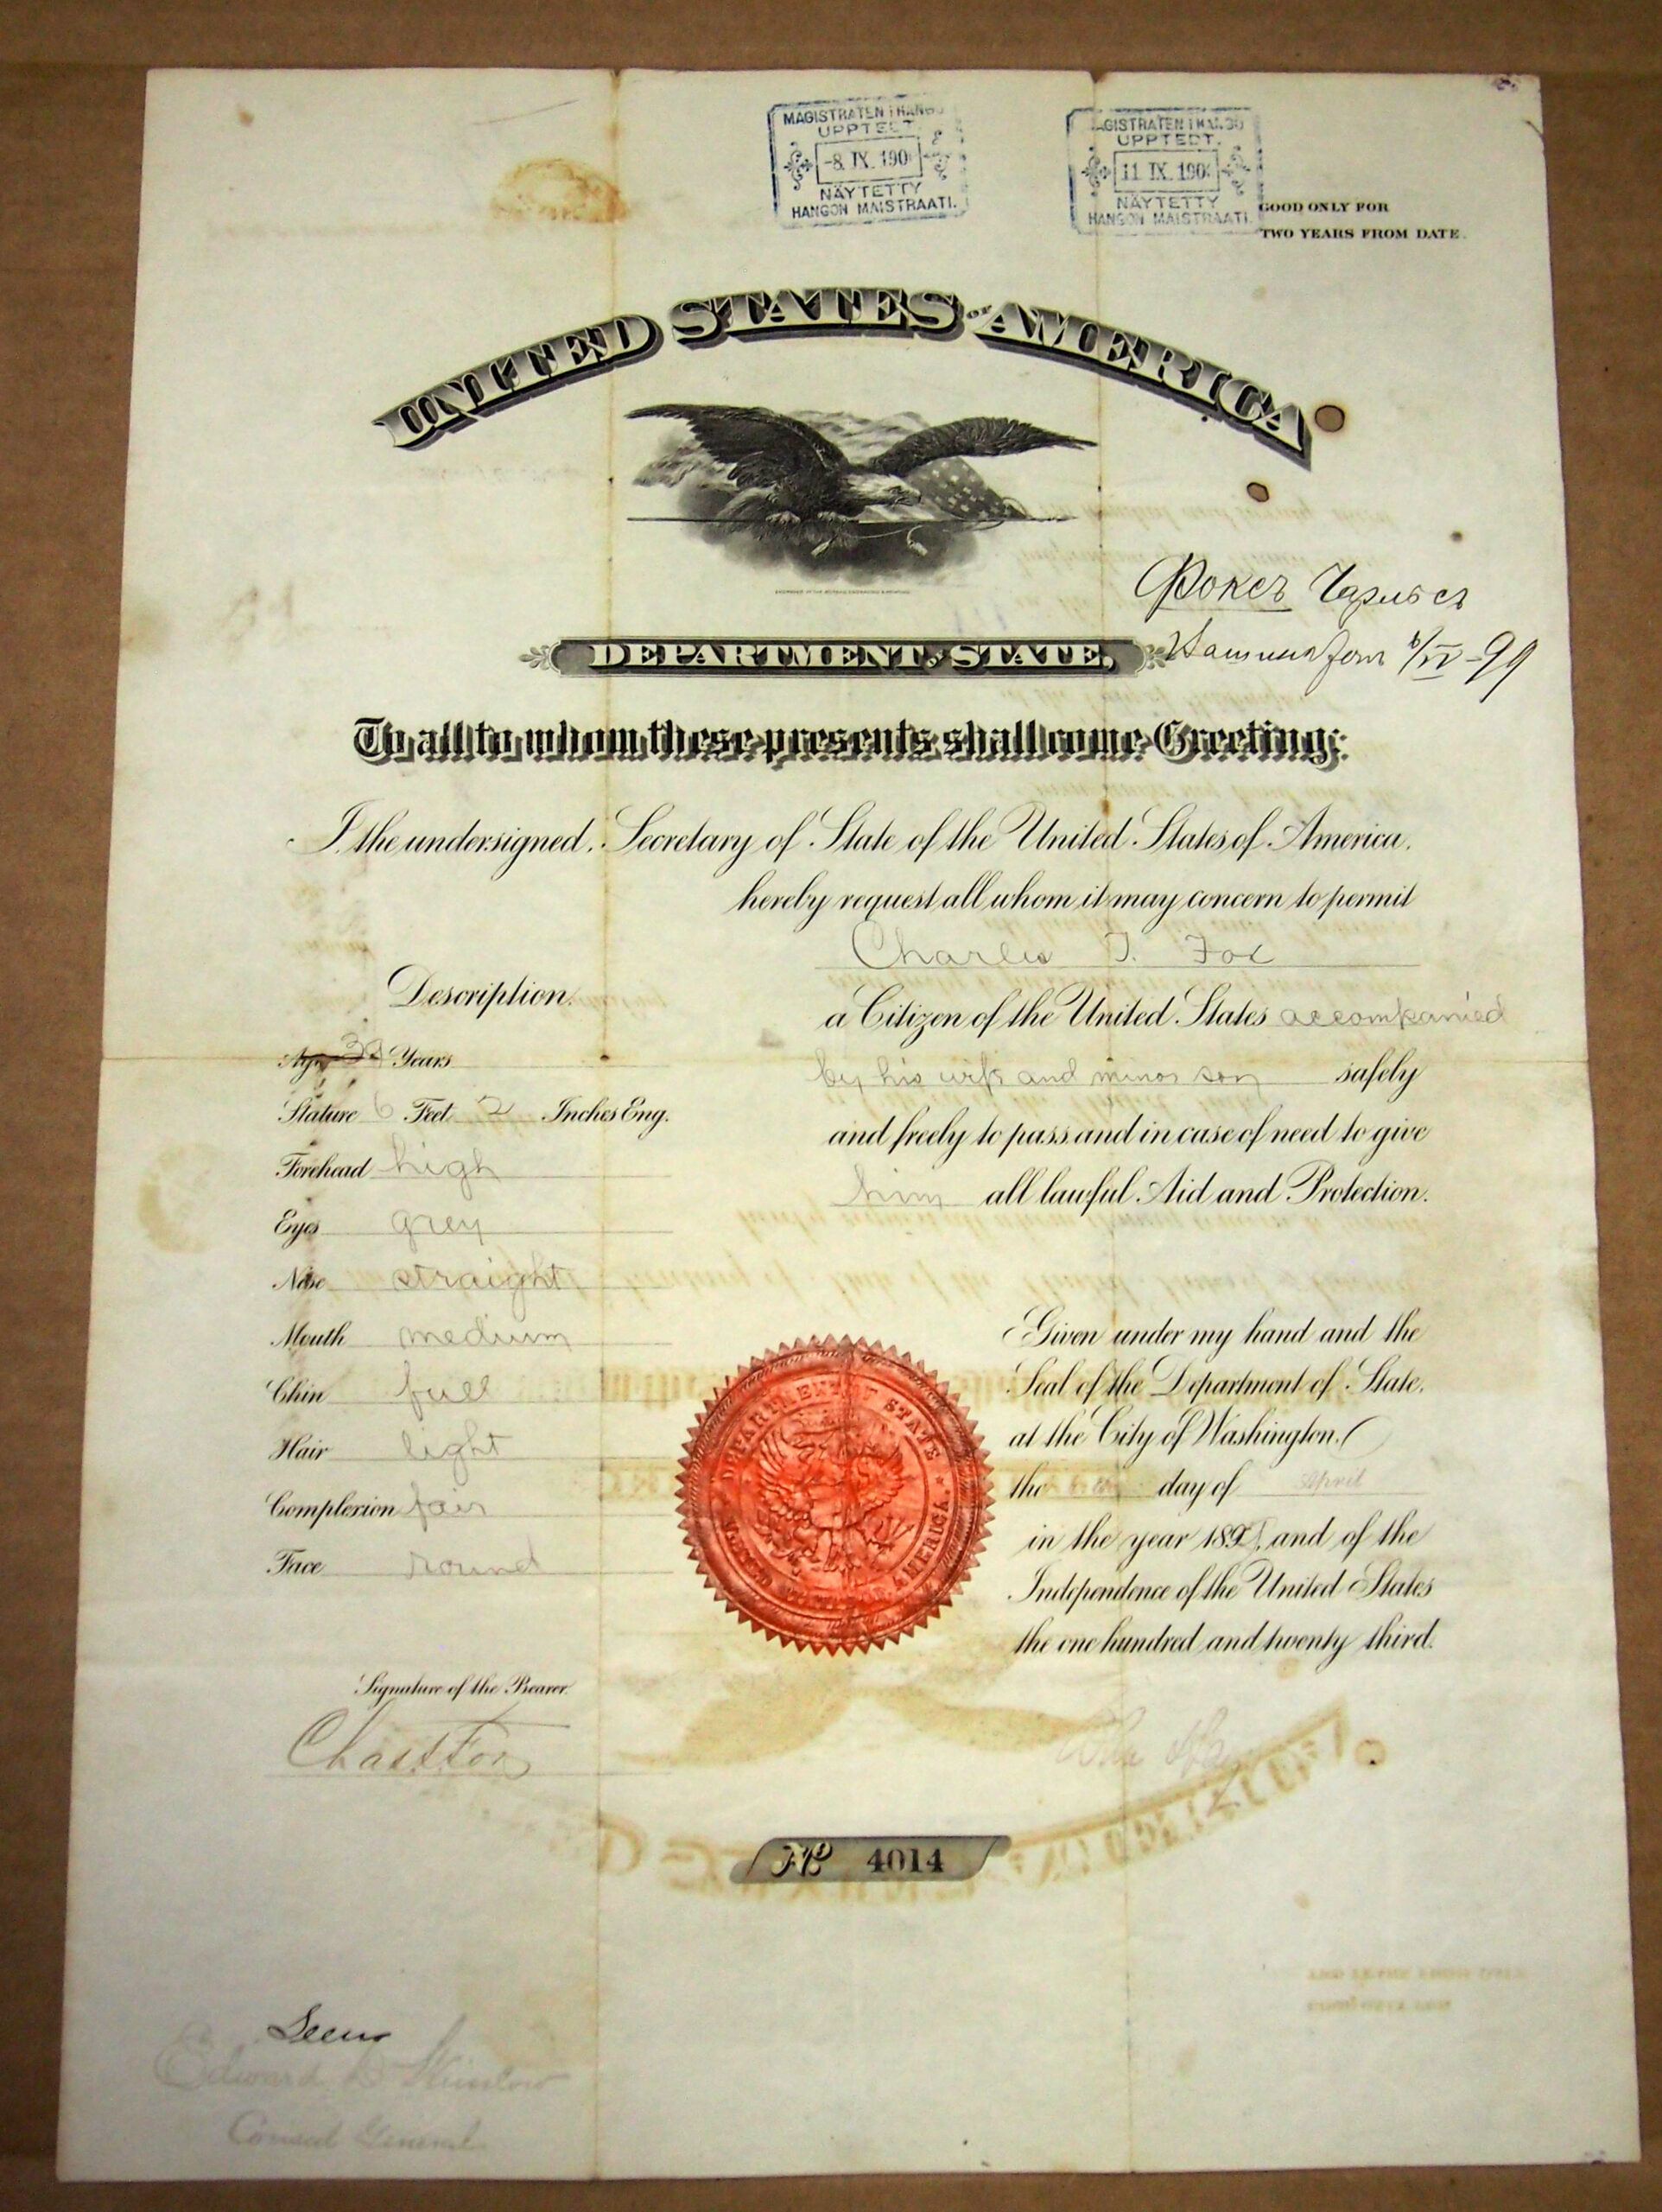 MAGISTRATEN I HANGÖ
UPPTEDT.
-8. IX. 190
NÄYTETTY
HANGON MAISTRAATI.
MAGISTRATEN I HANGÖ
UPPTEDT.
11. IX. 190
NÄYTETTY
HANGON MAISTRAATI.
GOOD ONLY FOR
TWO YEARS FROM DATE.
UNITED STATES OF AMERICA
DEPARTMENT OF STATE,
To all to whom these presents shall come Greeting:
I, the undersigned, Secretary of State of the United States of America,
hereby request all whom it may concern to permit
Charles T. Fox
a Citizen of the United States accompanied
by his wife and minor son safely
and freely to pass and in case of need to give
him all lawful Aid and Protection.
Description.
Age Years
Stature 6 Feet 2 Inches Eng.
Forehead high
Eyes grey
Nose straight
Mouth medium
Chin full
Hair light
Complexion fair
Face round
Signature of the Bearer.
Chas T Fox
DEPARTMENT OF STATE
UNITED STATES OF AMERICA
Given under my hand and the
Seal of the Department of State,
at the City of Washington,
the day of April
in the year 189 and of the
Independence of the United States
the one hundred and twenty third.
John Hay
No 4014
Seen
Edward D Winslow
Consul General